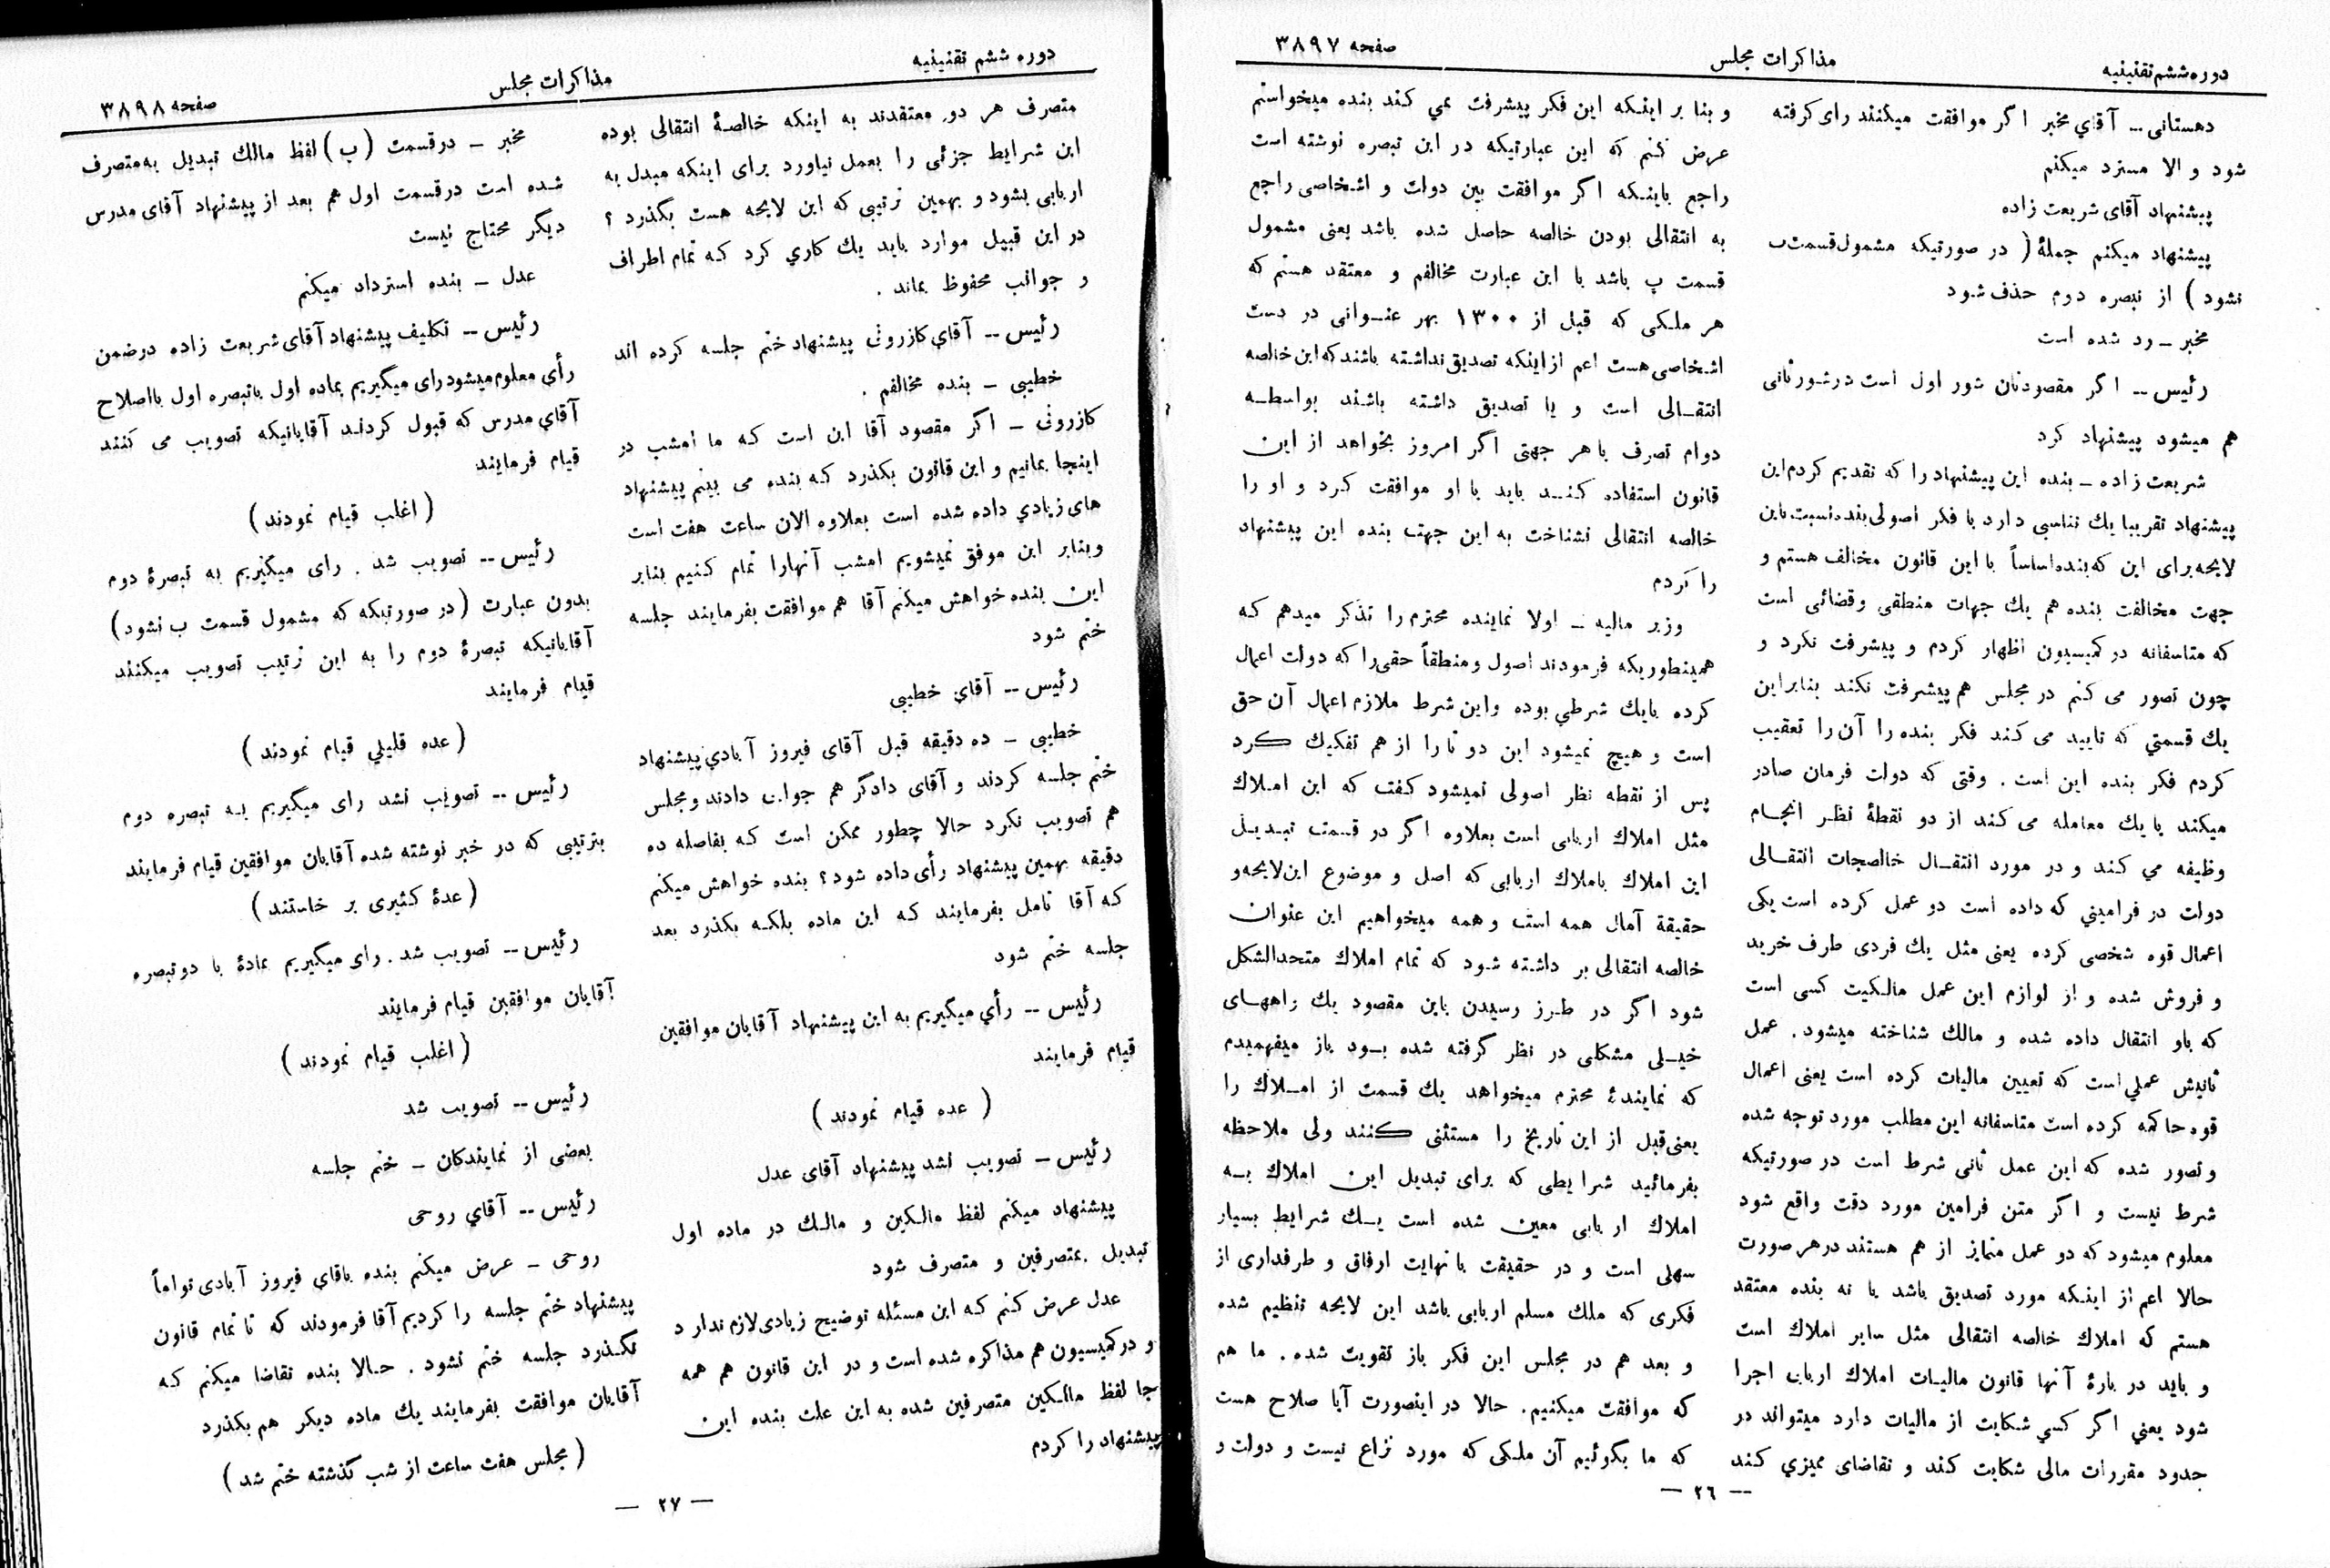 دوره ششم تقنینیه
مذاکرات مجلس
صفحه ۳۸۹۷
دهستانی -- آقای مخبر اگر موافقت میکنند رای گرفته
شود و الا مسترد میکنم
پیشنهاد آقای شریعت زاده
پیشنهاد میکنم جملهٔ ( در صورتیکه مشمول قسمت ب
نشود ) از تبصره دوم حذف شود
مخبر - رد شده است
رئیس -- اگر مقصودتان شور اول است در شور ثانی
هم میشود پیشنهاد کرد
شریعت زاده - بنده این پیشنهاد را که تقدیم کردم این
پیشنهاد تقریبا یك تناسبی دارد با فکر اصولی بنده نسبت باین
لایحه برای این که بنده اساساً با این قانون مخالف هستم و
جهت مخالفت بنده هم یك جهات منطقی و قضائی است
که متاسفانه در کمیسیون اظهار کردم و پیشرفت نکرد و
چون تصور می کنم در مجلس هم پیشرفت نکند بنابراین
یك قسمتي که تایید می کند فکر بنده را آن را تعقیب
کردم فکر بنده این است . وقتی که دولت فرمان صادر
میکند با یك معامله می کند از دو نقطهٔ نظر انجام
وظیفه می کند و در مورد انتقال خالصجات انتقالی
دولت در فراميني که داده است دو عمل کرده است یکی
اعمال قوه شخصی کرده یعنی مثل یك فردی طرف خرید
و فروش شده و از لوازم این عمل مالکیت کسی است
که باو انتقال داده شده و مالك شناخته میشود . عمل
ثانیش عملی است که تعیین مالیات کرده است یعنی اعمال
قوه حاکمه کرده است متاسفانه این مطلب مورد توجه شده
و تصور شده که این عمل ثانی شرط است در صورتیکه
شرط نیست و اگر متن فرامین مورد دقت واقع شود
معلوم میشود که دو عمل متمایز از هم هستند در هر صورت
حالا اعم از اینکه مورد تصدیق باشد یا نه بنده معتقد
هستم که املاك خالصه انتقالی مثل سایر املاك است
و باید در بارهٔ آنها قانون مالیات املاك اربابی اجرا
شود یعني اگر کسي شکایت از مالیات دارد میتواند در
حدود مقررات مالی شکایت کند و تقاضای ممیزي کند
و بنا بر اینکه این فکر پیشرفت نمي کند بنده میخواستم
عرض کنم که این عبارتیکه در این تبصره نوشته است
راجع باینکه اگر موافقت بین دولت و اشخاصی راجع
به انتقالی بودن خالصه حاصل شده باشد یعنی مشمول
قسمت پ باشد با این عبارت مخالفم و معتقد هستم که
هر ملکی که قبل از ۱۳۰۰ بهر عنوانی در دست
اشخاصی هست اعم از اینکه تصدیق نداشته باشند که این خالصه
انتقالی است و یا تصدیق داشته باشند بواسطه
دوام تصرف با هر جهتی اگر امروز بخواهد از این
قانون استفاده کند باید با او موافقت کرد و او را
خالصه انتقالی نشناخت به این جهت بنده این پیشنهاد
را کردم
وزیر مالیه - اولا نماینده محترم را تذکر میدهم که
همینطوریکه فرمودند اصول و منطقاً حقی را که دولت اعمال
کرده بایك شرطي بوده و این شرط ملازم اعمال آن حق
است و هیچ نمیشود این دو تا را از هم تفکیك کرد
پس از نقطه نظر اصولی نمیشود گفت که این املاك
مثل املاك اربابی است بعلاوه اگر در قسمت تبدیل
این املاك باملاك اربابی که اصل و موضوع این لایحه و
حقیقة آمال همه است و همه میخواهیم این عنوان
خالصه انتقالی بر داشته شود که تمام املاك متحدالشکل
شود اگر در طرز رسیدن باین مقصود یك راههای
خیلی مشکلی در نظر گرفته شده بود باز میفهمیدم
که نمایندهٔ محترم میخواهد یك قسمت از املاك را
یعنی قبل از این تاریخ را مستثنی کنند ولی ملاحظه
بفرمائید شرایطی که برای تبدیل این املاك به
املاك اربابی معین شده است یك شرایط بسیار
سهلی است و در حقیقت با نهایت ارفاق و طرفداری از
فکری که ملك مسلم اربابی باشد این لایحه تنظیم شده
و بعد هم در مجلس این فکر باز تقویت شده . ما هم
که موافقت میکنیم . حالا در اینصورت آیا صلاح هست
که ما بگوئیم آن ملکی که مورد نزاع نیست و دولت و
-- ۲٦ --
دوره ششم تقنینیه
مذاکرات مجلس
صفحه ۳۸۹۸
متصرف هر دو معتقدند به اینکه خالصهٔ انتقالی بوده
این شرایط جزئی را بعمل نیاورد برای اینکه مبدل به
اربابی بشود و بهمین ترتیبی که این لایحه هست بگذرد ؟
در این قبیل موارد باید یك کاري کرد که تمام اطراف
و جوانب محفوظ بماند .
رئیس -- آقای کازرونی پیشنهاد ختم جلسه کرده اند
خطیبی - بنده مخالفم .
کازرونی - اگر مقصود آقا این است که ما امشب در
اینجا بمانیم و این قانون بگذرد که بنده می بینم پیشنهاد
های زیادي داده شده است بعلاوه الان ساعت هفت است
و بنابر این موفق نمیشویم امشب آنهارا تمام کنیم بنابر
این بنده خواهش میکنم آقا هم موافقت بفرمایند جلسه
ختم شود
رئیس -- آقای خطیبی
خطیبی - ده دقیقه قبل آقای فیروز آبادي پیشنهاد
ختم جلسه کردند و آقای دادگر هم جواب دادند و مجلس
هم تصویب نکرد حالا چطور ممکن است که بفاصله ده
دقیقه بهمین پیشنهاد رأی داده شود ؟ بنده خواهش میکنم
که آقا تامل بفرمایند که این ماده بلکه بگذرد بعد
جلسه ختم شود
رئیس -- رأي میگیریم به این پیشنهاد آقایان موافقین
قیام فرمایند
( عده قیام نمودند )
رئیس - تصویب نشد پیشنهاد آقای عدل
پیشنهاد میکنم لفظ مالکین و مالك در ماده اول
تبدیل بمتصرفین و متصرف شود
عدل عرض کنم که این مسئله توضیح زیادی لازم ندارد
و در کمیسیون هم مذاکره شده است و در این قانون هم همه
جا لفظ مالکین متصرفین شده به این علت بنده این
پیشنهاد را کردم
مخبر - در قسمت ( ب ) لفظ مالك تبدیل به متصرف
شده است در قسمت اول هم بعد از پیشنهاد آقای مدرس
دیگر محتاج نیست
عدل - بنده استرداد میکنم
رئیس -- تکلیف پیشنهاد آقای شریعت زاده در ضمن
رأی معلوم میشود رای میگیریم بماده اول باتبصره اول بااصلاح
آقاي مدرس که قبول کردند آقایانیکه تصویب می کنند
قیام فرمایند
( اغلب قیام نمودند )
رئیس -- تصویب شد . رای میگیریم به تبصرهٔ دوم
بدون عبارت ( در صورتیکه که مشمول قسمت ب نشود )
آقایانیکه تبصرهٔ دوم را به این ترتیب تصویب میکنند
قیام فرمایند
( عده قلیلي قیام نمودند )
رئیس -- تصویب نشد رای میگیریم به تبصره دوم
بترتیبی که در خبر نوشته شده آقایان موافقین قیام فرمایند
( عدهٔ کثیری بر خاستند )
رئیس -- تصویب شد . رای میگیریم بمادهٔ با دو تبصره
آقایان موافقین قیام فرمایند
( اغلب قیام نمودند )
رئیس -- تصویب شد
بعضی از نمایندکان - ختم جلسه
رئیس -- آقاي روحی
روحی - عرض میکنم بنده باقاي فیروز آبادی تواماً
پیشنهاد ختم جلسه را کردیم آقا فرمودند که تا تمام قانون
نگذرد جلسه ختم نشود . حالا بنده تقاضا میکنم که
آقایان موافقت بفرمایند یك ماده دیگر هم بگذرد
( مجلس هفت ساعت از شب گذشته ختم شد )
-- ۲۷ --